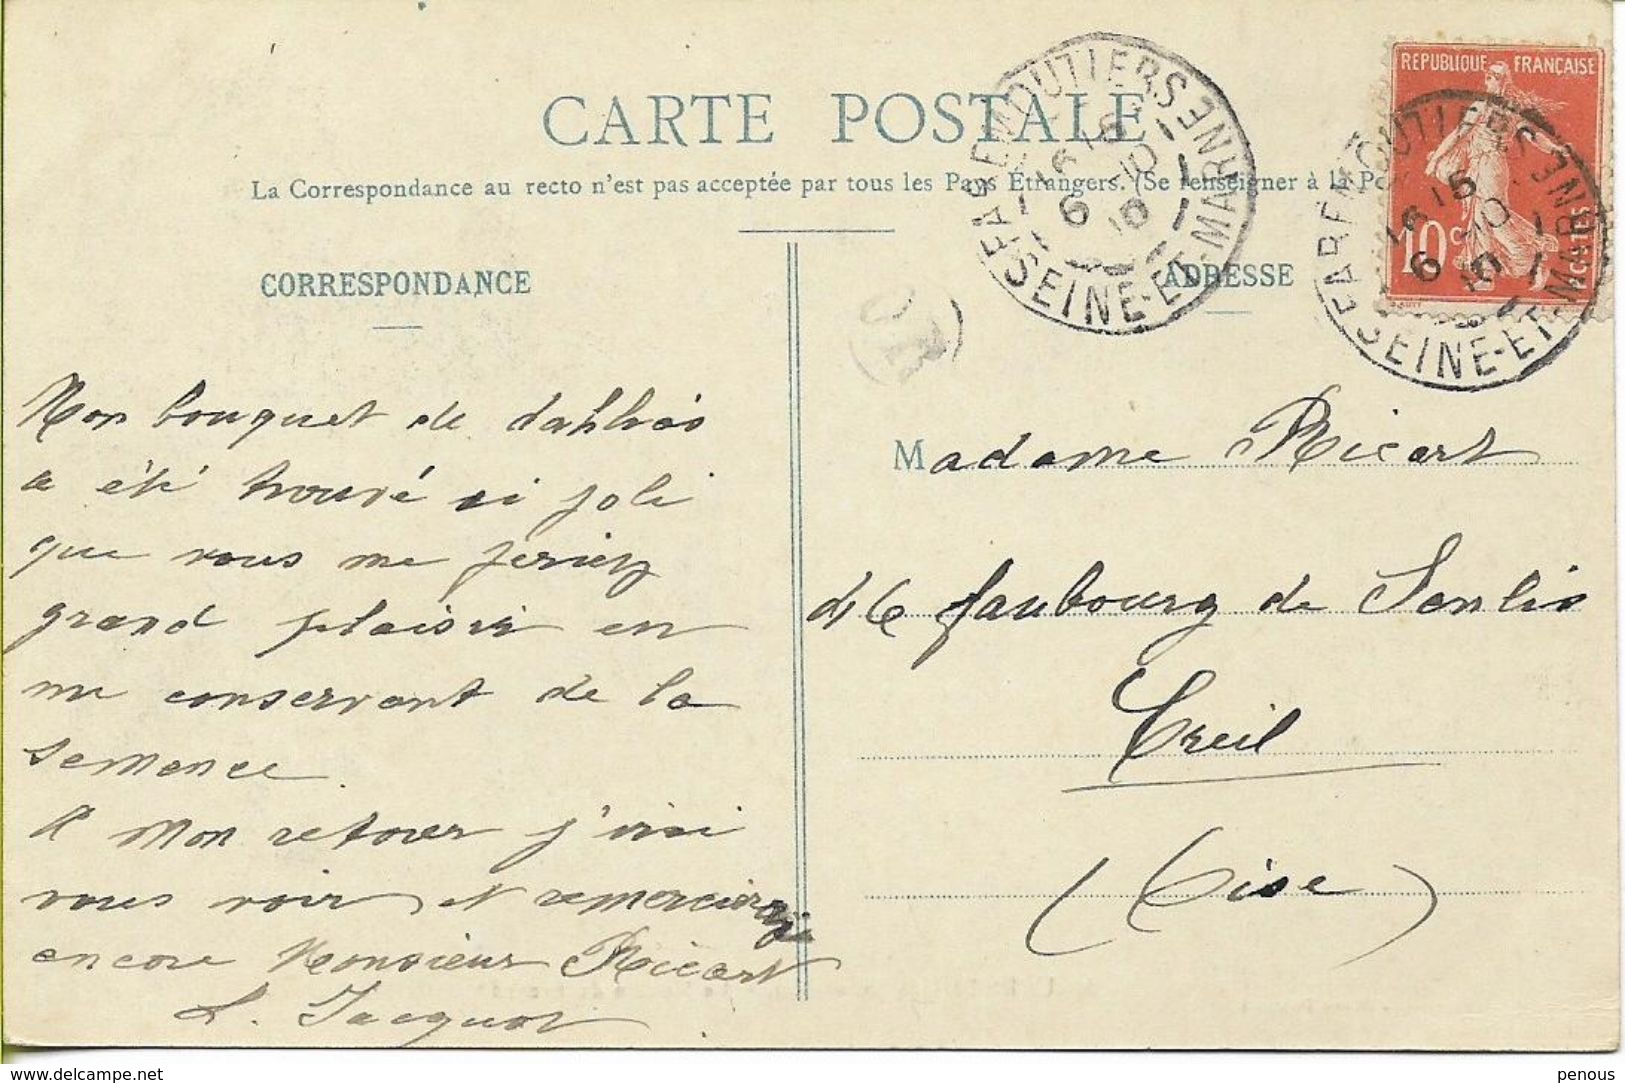 CARTE POSTALE
La Correspondance au recto n'est pas acceptée par tous les Pays Étrangers. (Se renseigner à la
CORRESPONDANCE
ADRESSE
REPUBLIQUE FRANÇAISE
10c
POSTES
FAREMOUTIERS
16 15
6 -10
10
SEINE-ET-MARNE
FAREMOUTIERS
16 15
6 -10
10
SEINE-ET-MARNE
Mon bouquet de dahlias
a été trouvé si joli
que vous me feriez
grand plaisir en
me conservant de la
semence.
A mon retour j'irai
vous voir et remercierai
encore Monsieur Ricart
L. Jacquot
Madame Ricart
46 faubourg de Senlis
Creil
(Oise)
www.delcampe.net
penous